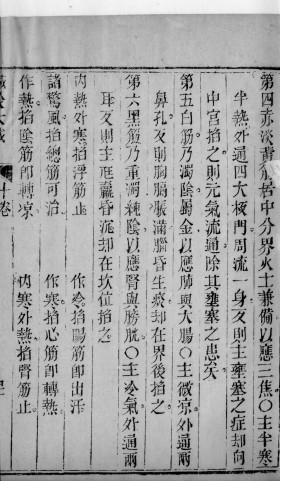 第四赤淡黃筋居中分界火土兼備以應三焦〇主半寒
半熱外通四大板門周流一身反則主壅塞之症却向
中宮掐之則元氣流通除其壅塞之患矣
第五白筋乃濁陰屬金以應肺與大腸〇主微凉外通兩
鼻孔反則胸膈脹滿腦昏生痰却在界後掐之
第六黑筋乃重濁純陰以應腎與膀胱〇主冷氣外通兩
耳反則主尫羸昏沉却在坎位掐之
內熱外寒掐浮筋止　　作冷掐陽筋卽出汗
諸驚風掐總筋可治　　作寒掐心筋卽轉熱
作熱掐陰筋卽轉凉　　內寒外熱掐腎筋止
大成　十卷